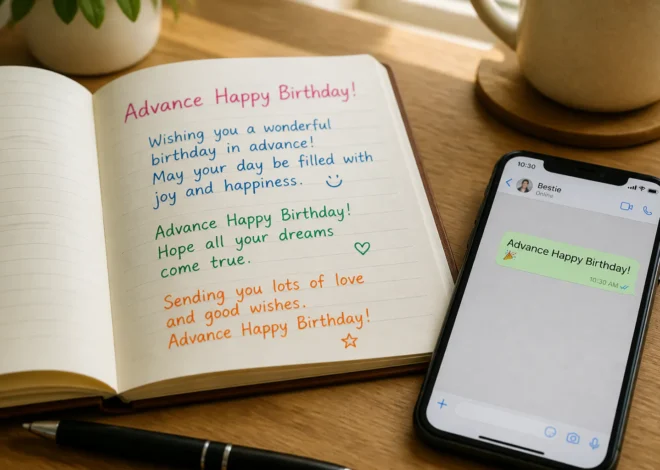 Advance Happy Birthday!
Wishing you a wonderful
birthday in advance!
May your day be filled with
joy and happiness.
Advance Happy Birthday!
Hope all your dreams
come true.
Sending you lots of love
and good wishes.
Advance Happy Birthday!
10:30
Bestie
Online
Advance Happy Birthday!
🎉
10:30 AM